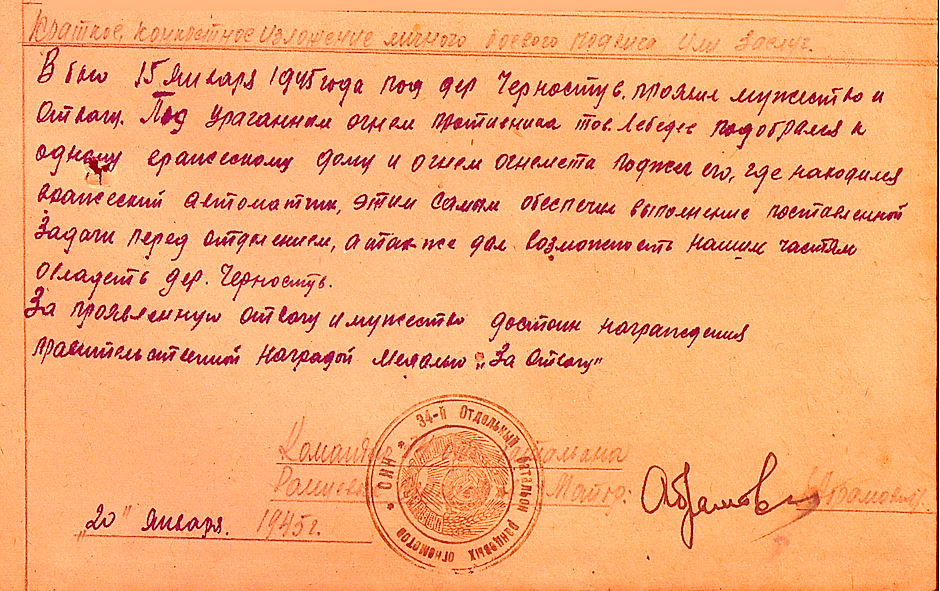 Краткое, конкретное изложение личного боевого подвига или заслуг.
В бою 15 января 1945 года под дер. Черностув. проявил мужество и
отвагу. Под ураганным огнем противника тов. Лебедев подобрался к
одному вражескому дому и огнем огнемета поджег его, где находился
вражеский автоматчик, этим самым обеспечил выполнение поставленной
задачи перед отделением, а так же дал возможность нашим частям
овладеть дер. Черностув.
За проявленную отвагу и мужество достоин награждения
правительственной наградой медалью „За отвагу"
Командир батальона
Майор: Абрамов
„20" января. 1945г.
34-й Отдельный батальон ранцевых огнеметов